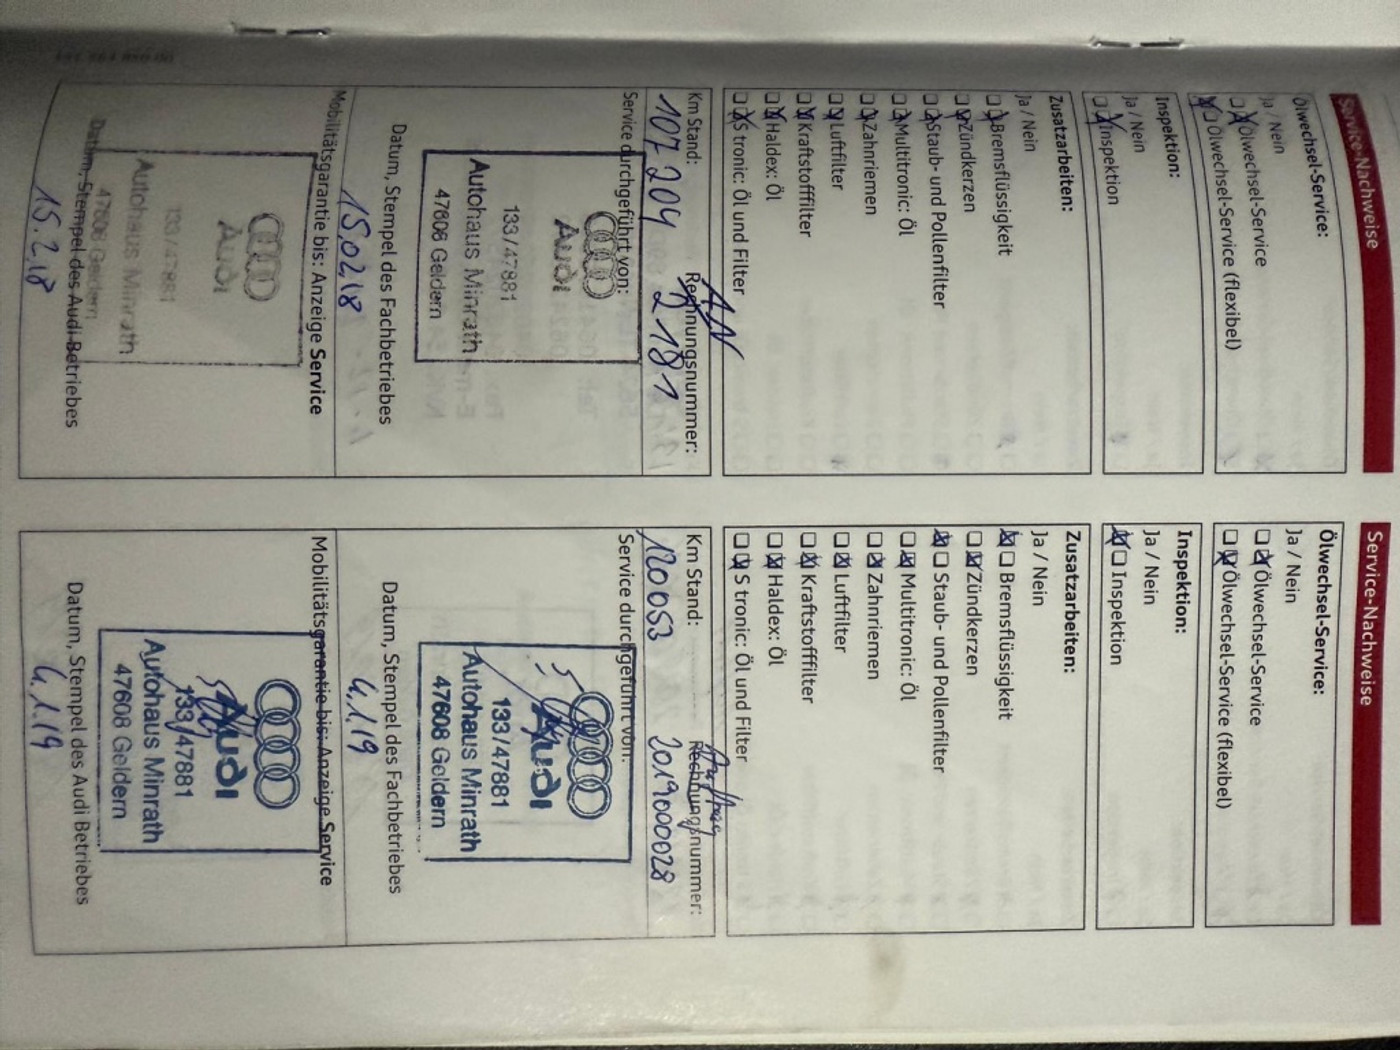 Service-Nachweise
Ölwechsel-Service:
Ja / Nein
Ölwechsel-Service
Ölwechsel-Service (flexibel)
Inspektion:
Ja / Nein
Inspektion
Zusatzarbeiten:
Ja / Nein
Bremsflüssigkeit
Zündkerzen
Staub- und Pollenfilter
Multitronic: Öl
Zahnriemen
Luftfilter
Kraftstofffilter
Haldex: Öl
S tronic: Öl und Filter
AN
Km Stand: Rechnungsnummer:
107204 2181
Service durchgeführt von:
Audi
133/47881
Autohaus Minrath
47608 Geldern
Datum, Stempel des Fachbetriebes
15.02.18
Mobilitätsgarantie bis: Anzeige Service
Audi
133/47881
Autohaus Minrath
47608 Geldern
Datum, Stempel des Audi Betriebes
15.2.18
Service-Nachweise
Ölwechsel-Service:
Ja / Nein
Ölwechsel-Service
Ölwechsel-Service (flexibel)
Inspektion:
Ja / Nein
Inspektion
Zusatzarbeiten:
Ja / Nein
Bremsflüssigkeit
Zündkerzen
Staub- und Pollenfilter
Multitronic: Öl
Zahnriemen
Luftfilter
Kraftstofffilter
Haldex: Öl
S tronic: Öl und Filter
Auftrag
Km Stand: Rechnungsnummer:
120053 2019000028
Service durchgeführt von:
Audi
133/47881
Autohaus Minrath
47608 Geldern
Datum, Stempel des Fachbetriebes
4.1.19
Mobilitätsgarantie bis: Anzeige Service
Audi
133/47881
Autohaus Minrath
47608 Geldern
Datum, Stempel des Audi Betriebes
4.1.19